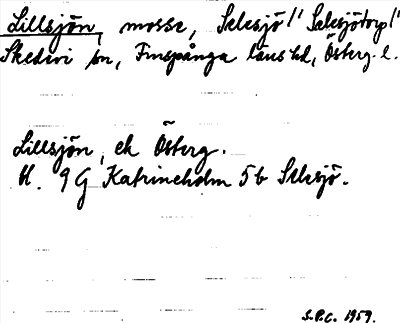 Lillsjön, mosse, Selesjö /' Selesjötorp /'
Skedevi sn, Finspånga läns hd, Österg. l.
Lillsjön, ek Österg.
bl. 9 G Katrineholm 5 b Selesjö.
S.P.C. 1959.